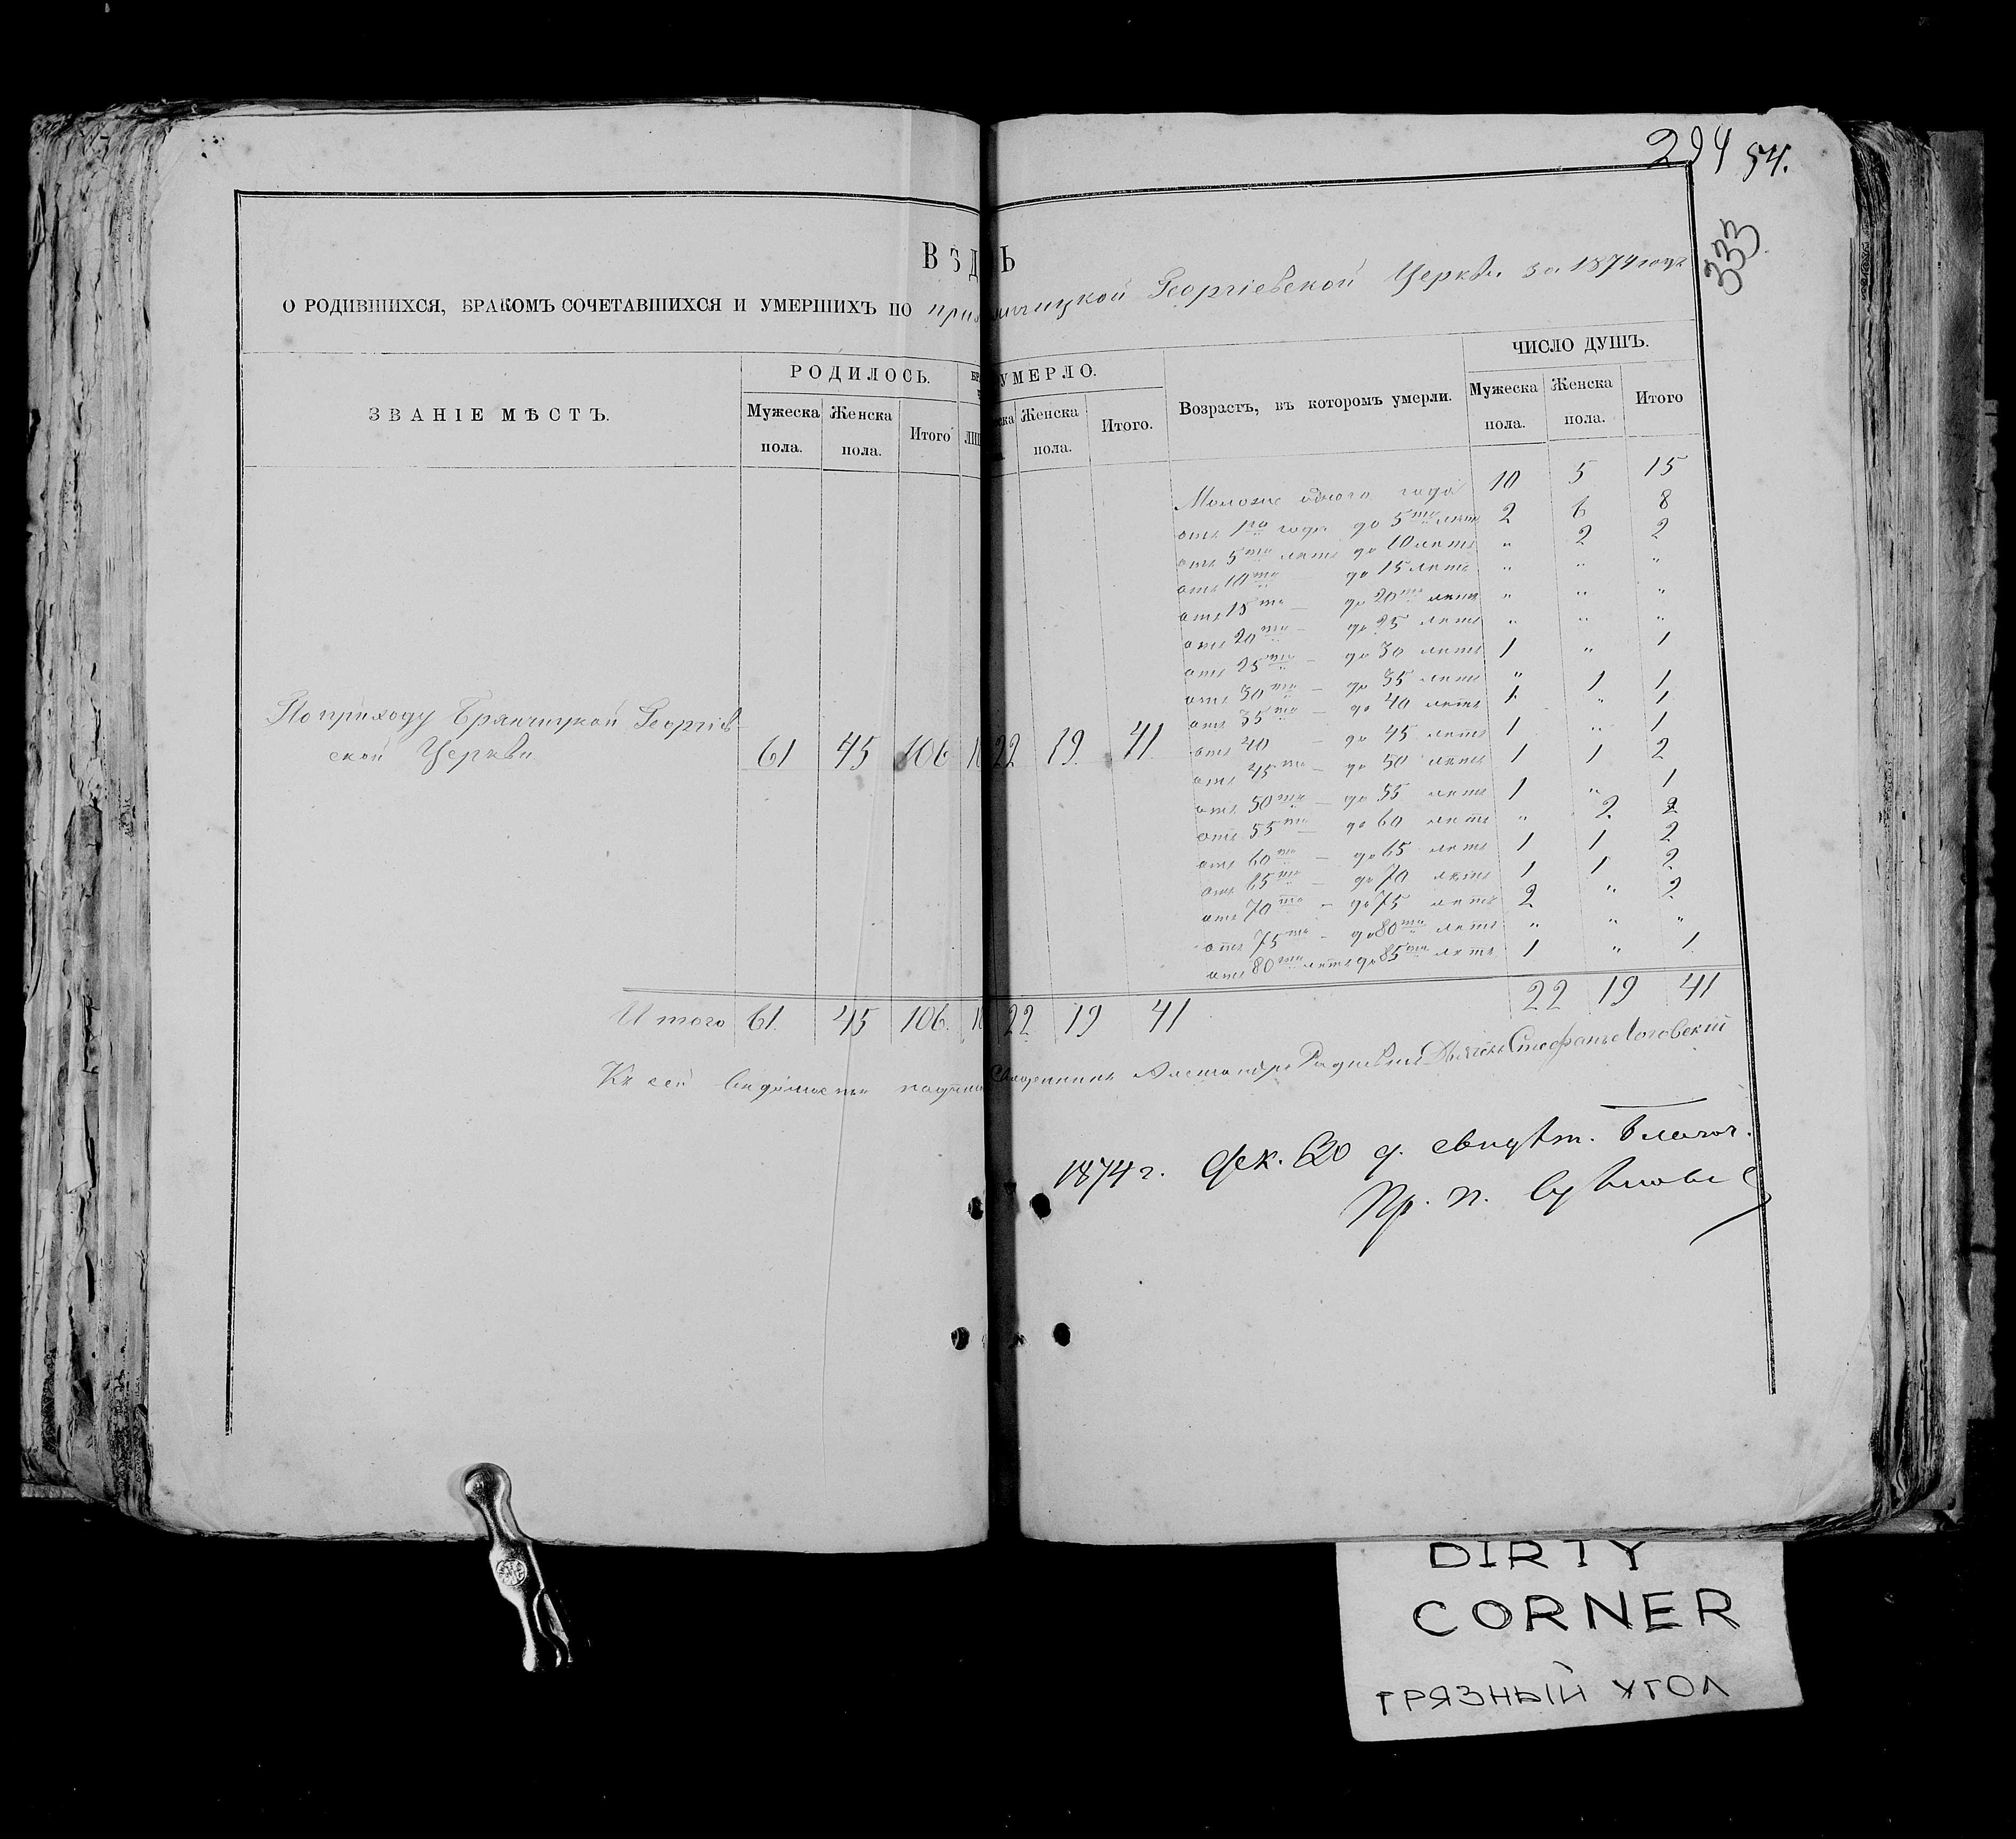 294 54.
333
ВѢД Ь
О РОДИВШИХСЯ, БРАКОМЪ СОЧЕТАВШИХСЯ И УМЕРШИХЪ ПО Георгіевской Церкви за 1874 годъ
ЗВАНІЕ МѢСТЪ.
РОДИЛОСЬ.
Мужеска пола.
Женска пола.
Итого
УМЕРЛО.
Женска пола.
Итого.
Возрастъ, въ которомъ умерли.
ЧИСЛО ДУШЪ.
Мужеска пола.
Женска пола.
Итого
Моложе одного года 10 5 15
отъ 1го года до 5ти лѣтъ 2 6 8
отъ 5ти лѣтъ до 10 лѣтъ " 2 2
отъ 10ти до 15 лѣтъ " " "
отъ 15ти — до 20ти лѣтъ " " "
отъ 20ти — до 25 лѣтъ " " "
отъ 25ти — до 30 лѣтъ 1 " 1
отъ 30ти — до 35 лѣтъ " 1 1
отъ 35ти — до 40 лѣтъ 1 " 1
отъ 40 — до 45 лѣтъ 1 " 1
отъ 45ти — до 50 лѣтъ 1 1 2
отъ 50ти — до 55 лѣтъ 1 " 1
отъ 55ти — до 60 лѣтъ " 2 2
отъ 60ти — до 65 лѣтъ 1 1 2
отъ 65ти — до 70 лѣтъ 1 1 2
отъ 70ти — до 75 лѣтъ 2 " 2
отъ 75ти — до 80ти лѣтъ " " "
отъ 80ти лѣтъ до 85ти лѣтъ 1 " 1
По приходу Брянчицкой Георгіев
ской Церкви 61 45 106 22 19 41
Итого 61 45 106 22 19 41 22 19 41
Къ сей вѣдомости Священникъ Александръ Дьячекъ Стефанъ Логовскій
1874 г. Дек. 20 д. свидѣт. Благоч.
Пр. П.
DIRTY
CORNER
ГРЯЗНЫЙ УГОЛ